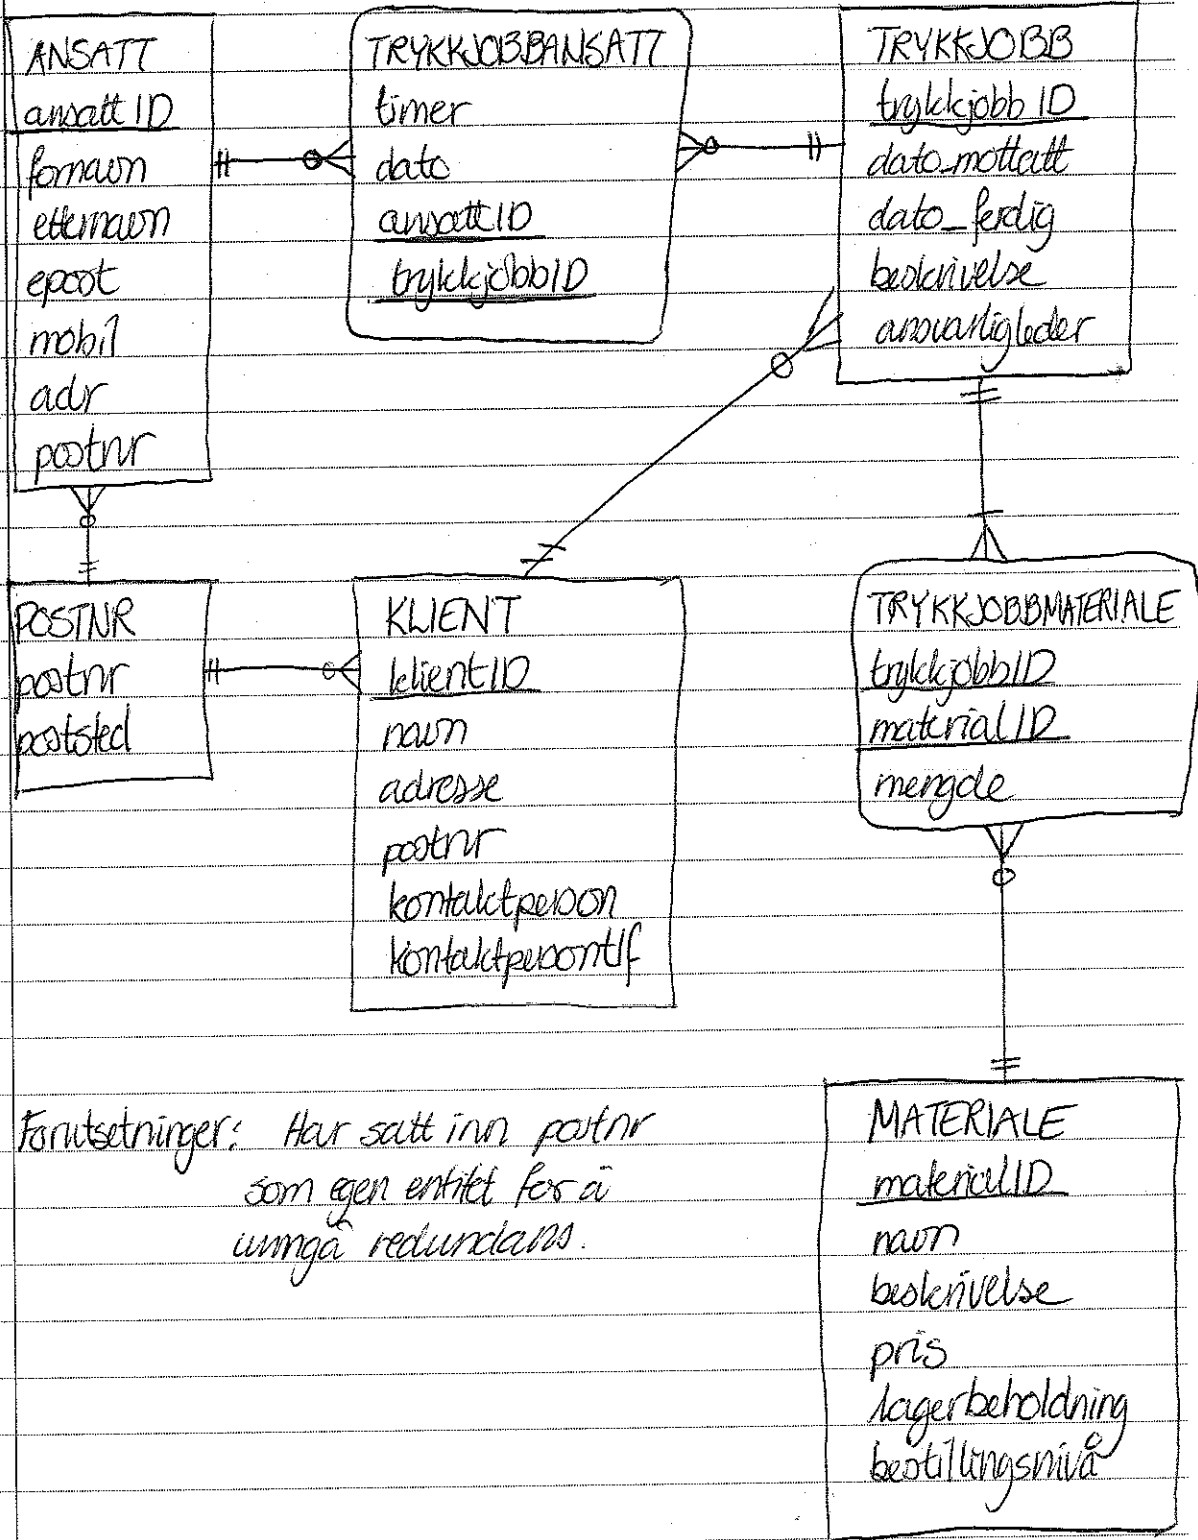 ANSATT
ansattID
fornavn
etternavn
epost
mobil
adr
postnr
TRYKKJOBBANSATT
timer
dato
ansattID
trykkjobbID
TRYKKJOBB
trykkjobbID
dato_mottatt
dato_ferdig
beskrivelse
ansvarligleder
POSTNR
postnr
poststed
KLIENT
klientID
navn
adresse
postnr
kontaktperson
kontaktpersontlf
TRYKKJOBBMATERIALE
trykkjobbID
materialID
mengde
MATERIALE
materialID
navn
beskrivelse
pris
lagerbeholdning
bestillingsnivå
Forutsetninger: Har satt inn postnr
som egen entitet for å
unngå redundans.